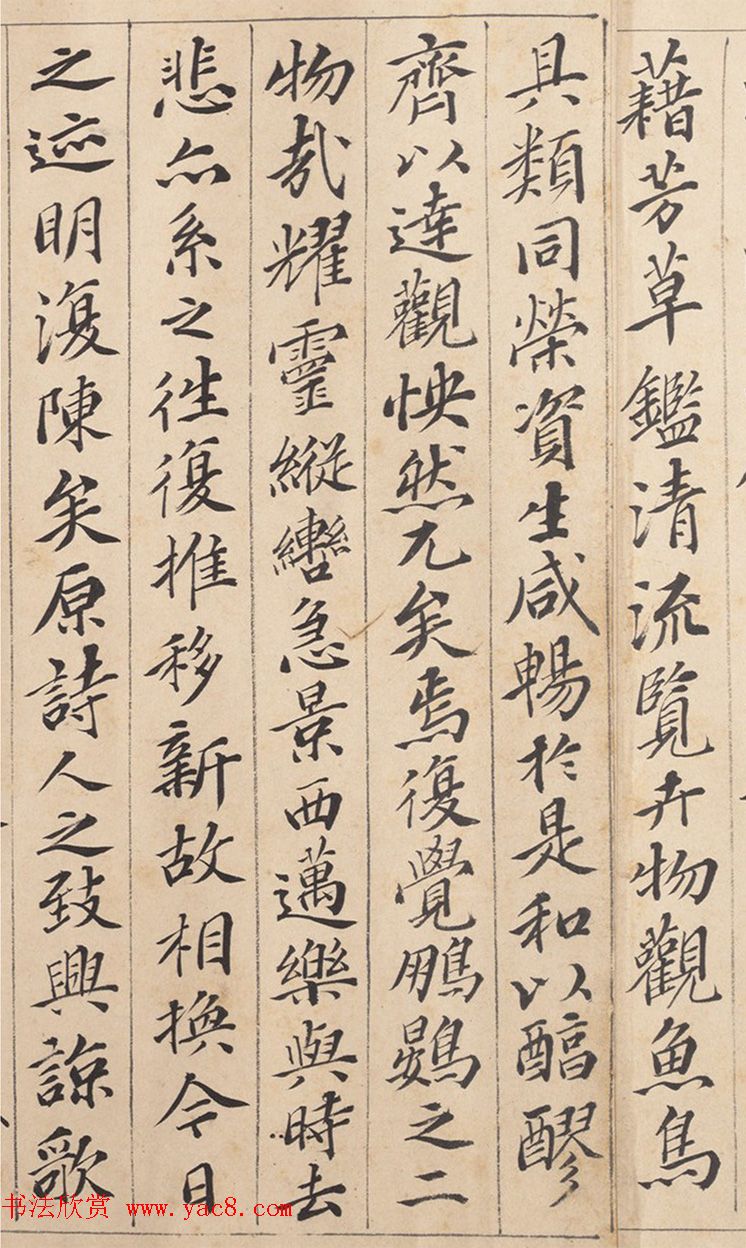 藉芳草鑑清流覽卉物觀魚鳥
具類同榮資生咸暢於是和以醇醪
齊以達觀怏然兀矣焉復覺鵬鷃之二
物哉耀靈縱轡急景西邁樂與時去
悲亦系之往復推移新故相換今日
之迹明復陳矣原詩人之致興諒歌
书法欣赏 www.yac8.com